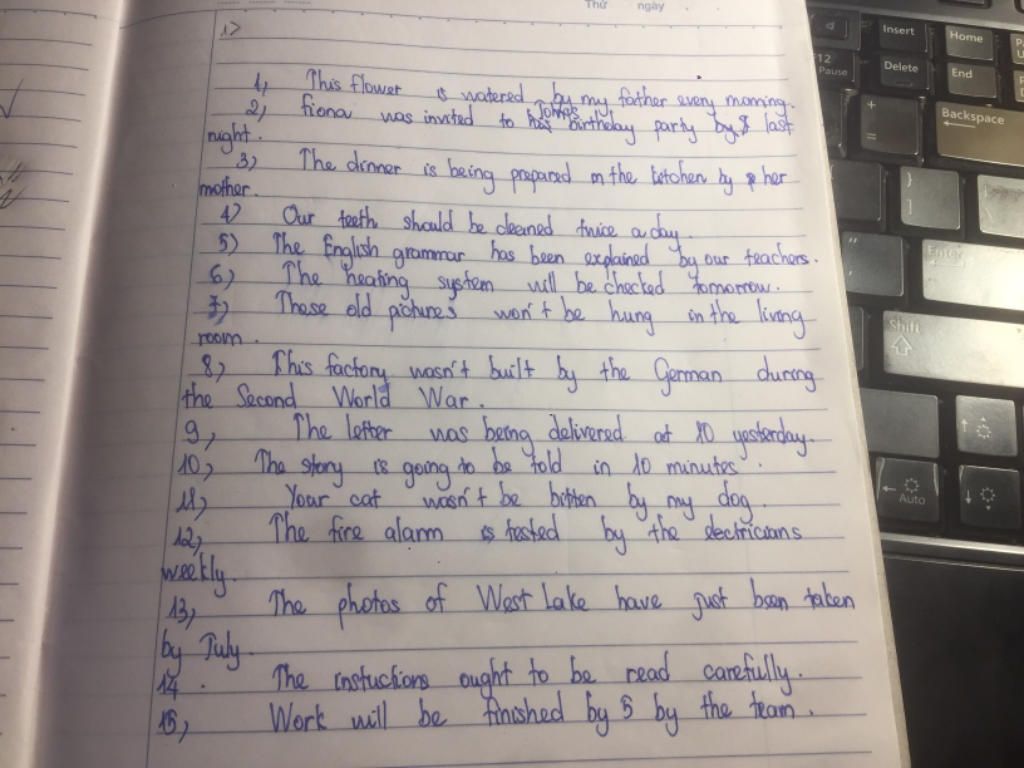 Thứ ngày
1>
1, This flower is watered by my father every morning.
2, fiona was invited to Tom's birthday party by last
night.
3, The dinner is being prepared in the kitchen by her
mother.
4> Our teeth should be cleaned twice a day.
5) The English grammar has been explained by our teachers.
6) The heating system will be checked tomorrow.
7) These old pictures won't be hung in the living
room.
8) This factory wasn't built by the German during
the Second World War.
9, The letter was being delivered at 10 yesterday.
10, The story is going to be told in 10 minutes.
11) Your cat wasn't be bitten by my dog.
12, The fire alarm is tested by the electricians
weekly.
13, The photos of West Lake have just been taken
by July.
14. The instuctions ought to be read carefully.
15, Work will be finished by 5 by the team.
Insert
Home
F12
Pause
Delete
End
+
=
Backspace
}
]
"
Enter
Shift
Auto